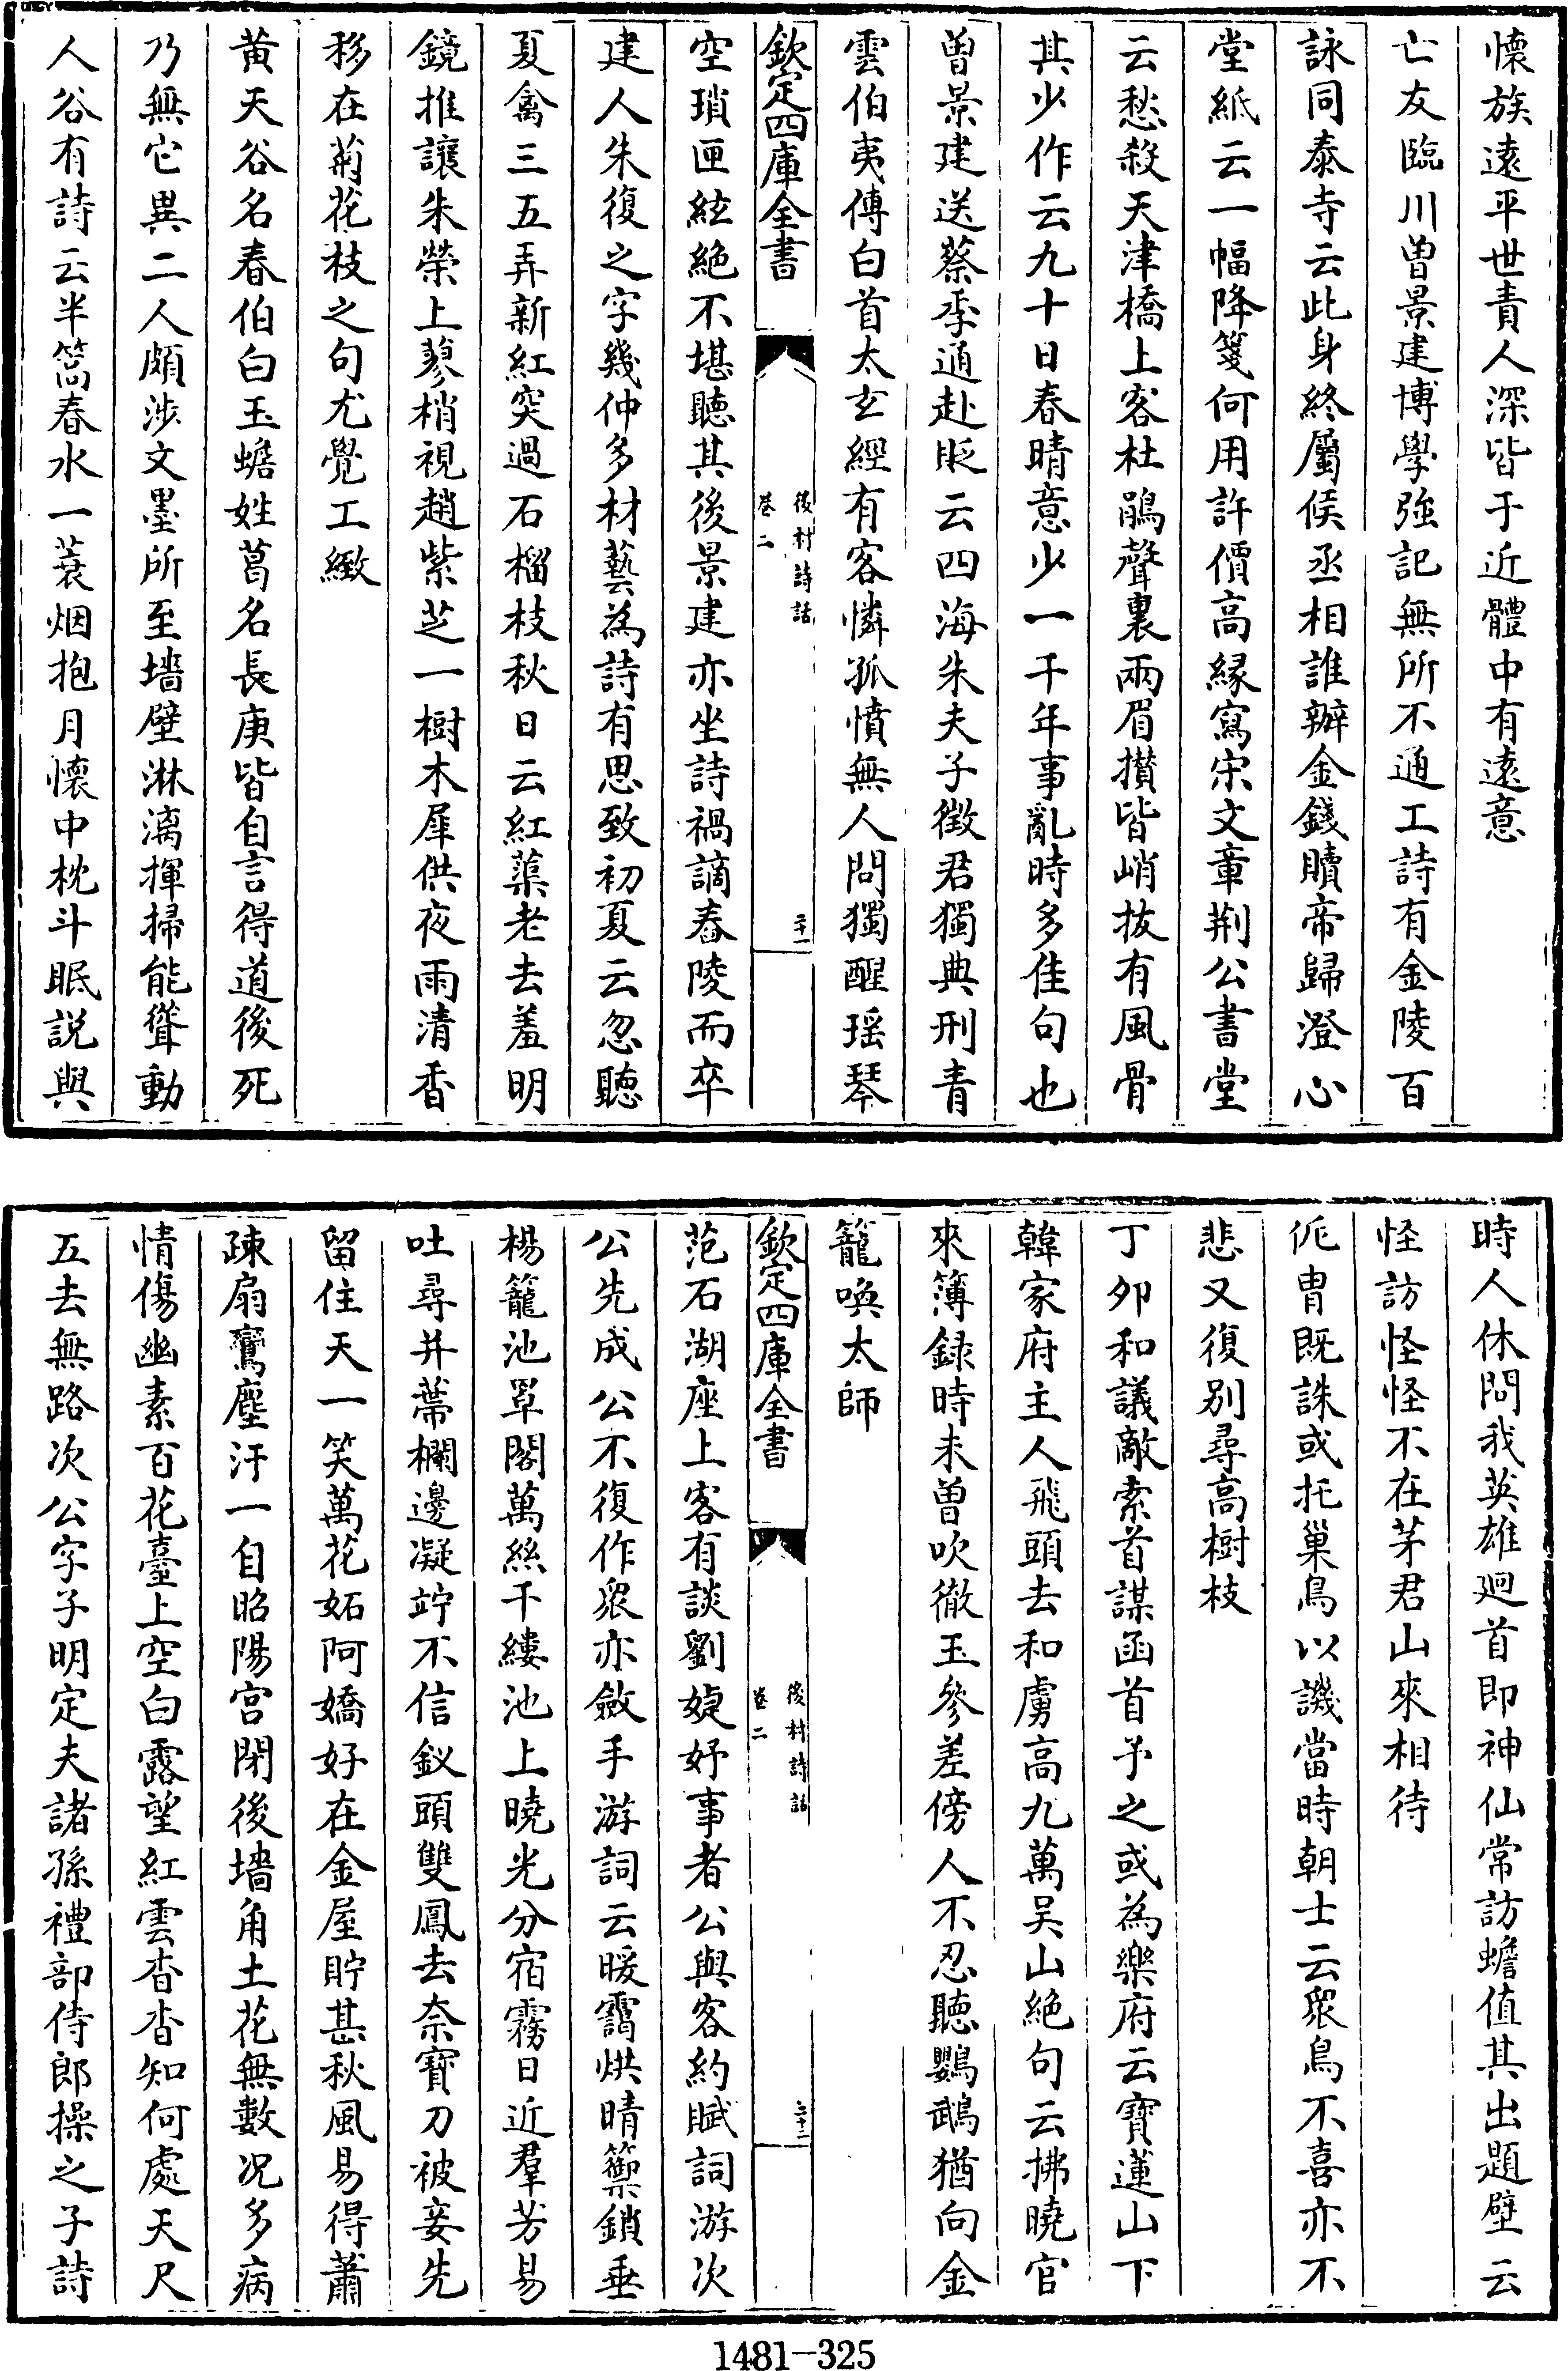 懷族遠平世責人深皆于近體中有遠意
亡友臨川曽景建博學強記無所不通工詩有金陵百
詠同泰寺云此身終屬侯丞相誰辦金錢贖帝歸澄心
堂紙云一幅降箋何用許價髙縁寫宋文章荆公書堂
云愁殺天津橋上客杜鵑聲裏兩眉攅皆峭拔有風骨
其少作云九十日春晴意少一千年事亂時多佳句也
曽景建送蔡季通赴貶云四海朱夫子徴君獨典刑青
雲伯夷傳白首太玄經有客憐孤憤無人問獨醒瑶琴
欽定四庫全書
後村詩話
卷二
二十一
空瑣匣絃絶不堪聽其後景建亦坐詩禍謫舂陵而卒
建人朱復之字幾仲多材藝為詩有思致初夏云忽聽
夏禽三五弄新紅突過石榴枝秋日云紅蕖老去羞明
鏡推讓朱榮上蓼梢視趙紫芝一樹木犀供夜雨清香
移在菊花枝之句尤覺工緻
黄天谷名春伯白玉蟾姓葛名長庚皆自言得道後死
乃無它異二人頗涉文墨所至墻壁淋漓揮掃能聳動
人谷有詩云半篙春水一蓑烟抱月懷中枕斗眠説與
時人休問我英雄廻首即神仙常訪蟾值其出題壁云
怪訪怪怪不在茅君山來相待
侂胄既誅或托巢鳥以譏當時朝士云衆鳥不喜亦不
悲又復别尋髙樹枝
丁夘和議敵索首謀函首予之或為樂府云寳蓮山下
韓家府主人飛頭去和虜髙九萬吴山絶句云拂曉官
來簿録時未曽吹徹玉參差傍人不忍聽鸚鵡猶向金
籠喚太師
欽定四庫全書
後村詩話
卷二
二十二
范石湖座上客有談劉婕妤事者公與客約賦詞游次
公先成公不復作衆亦斂手游詞云暖靄烘晴籞鎖垂
楊籠池罩閣萬絲千縷池上曉光分宿霧日近羣芳易
吐尋并蔕欄邊凝竚不信釵頭雙鳳去奈寳刀被妾先
留住天一笑萬花妬阿嬌好在金屋貯甚秋風易得蕭
疎扇鸞塵汗一自昭陽宫閉後墻角土花無數况多病
情傷幽素百花臺上空白露望紅雲杳杳知何處天尺
五去無路次公字子明定夫諸孫禮部侍郎操之子詩
1481-325